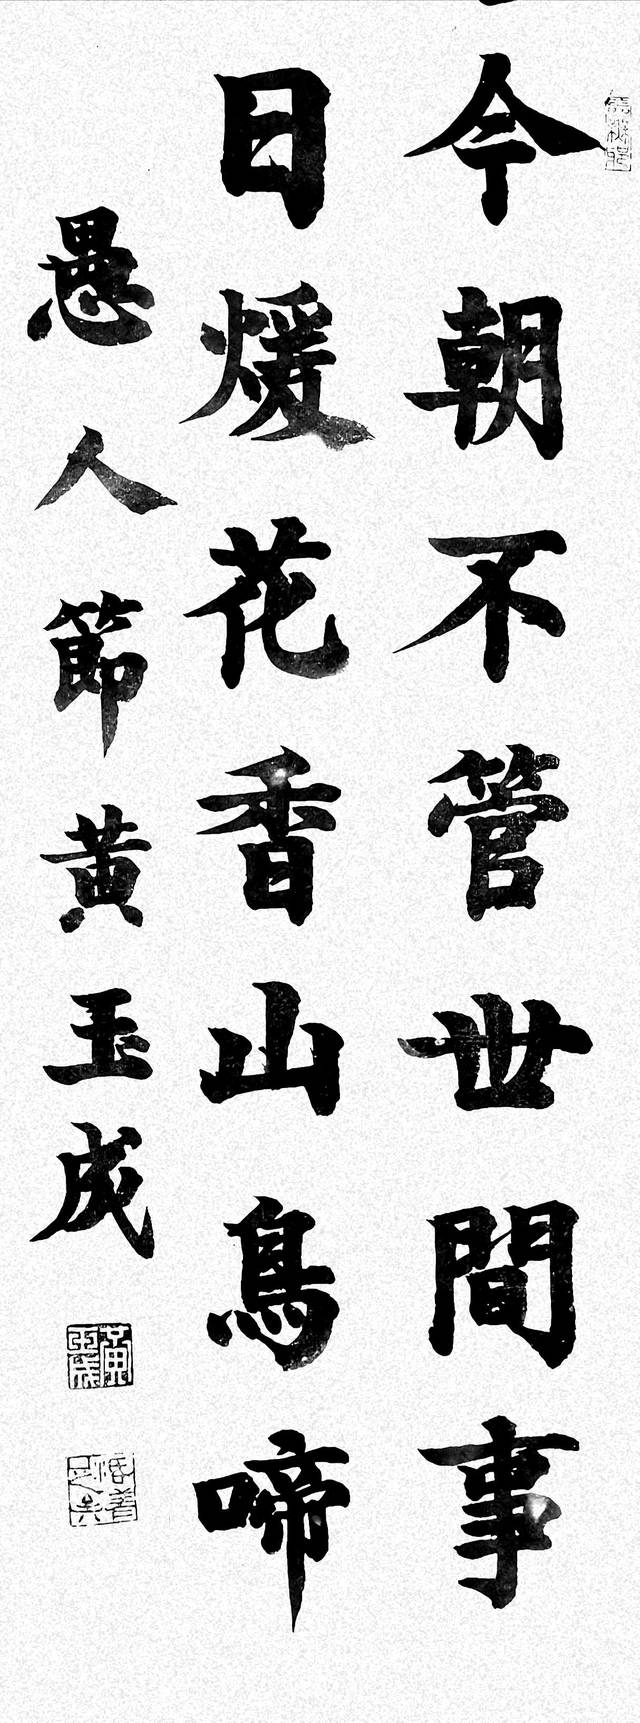 今朝不管世間事
日煖花香山鳥啼
愚人節黃玉成